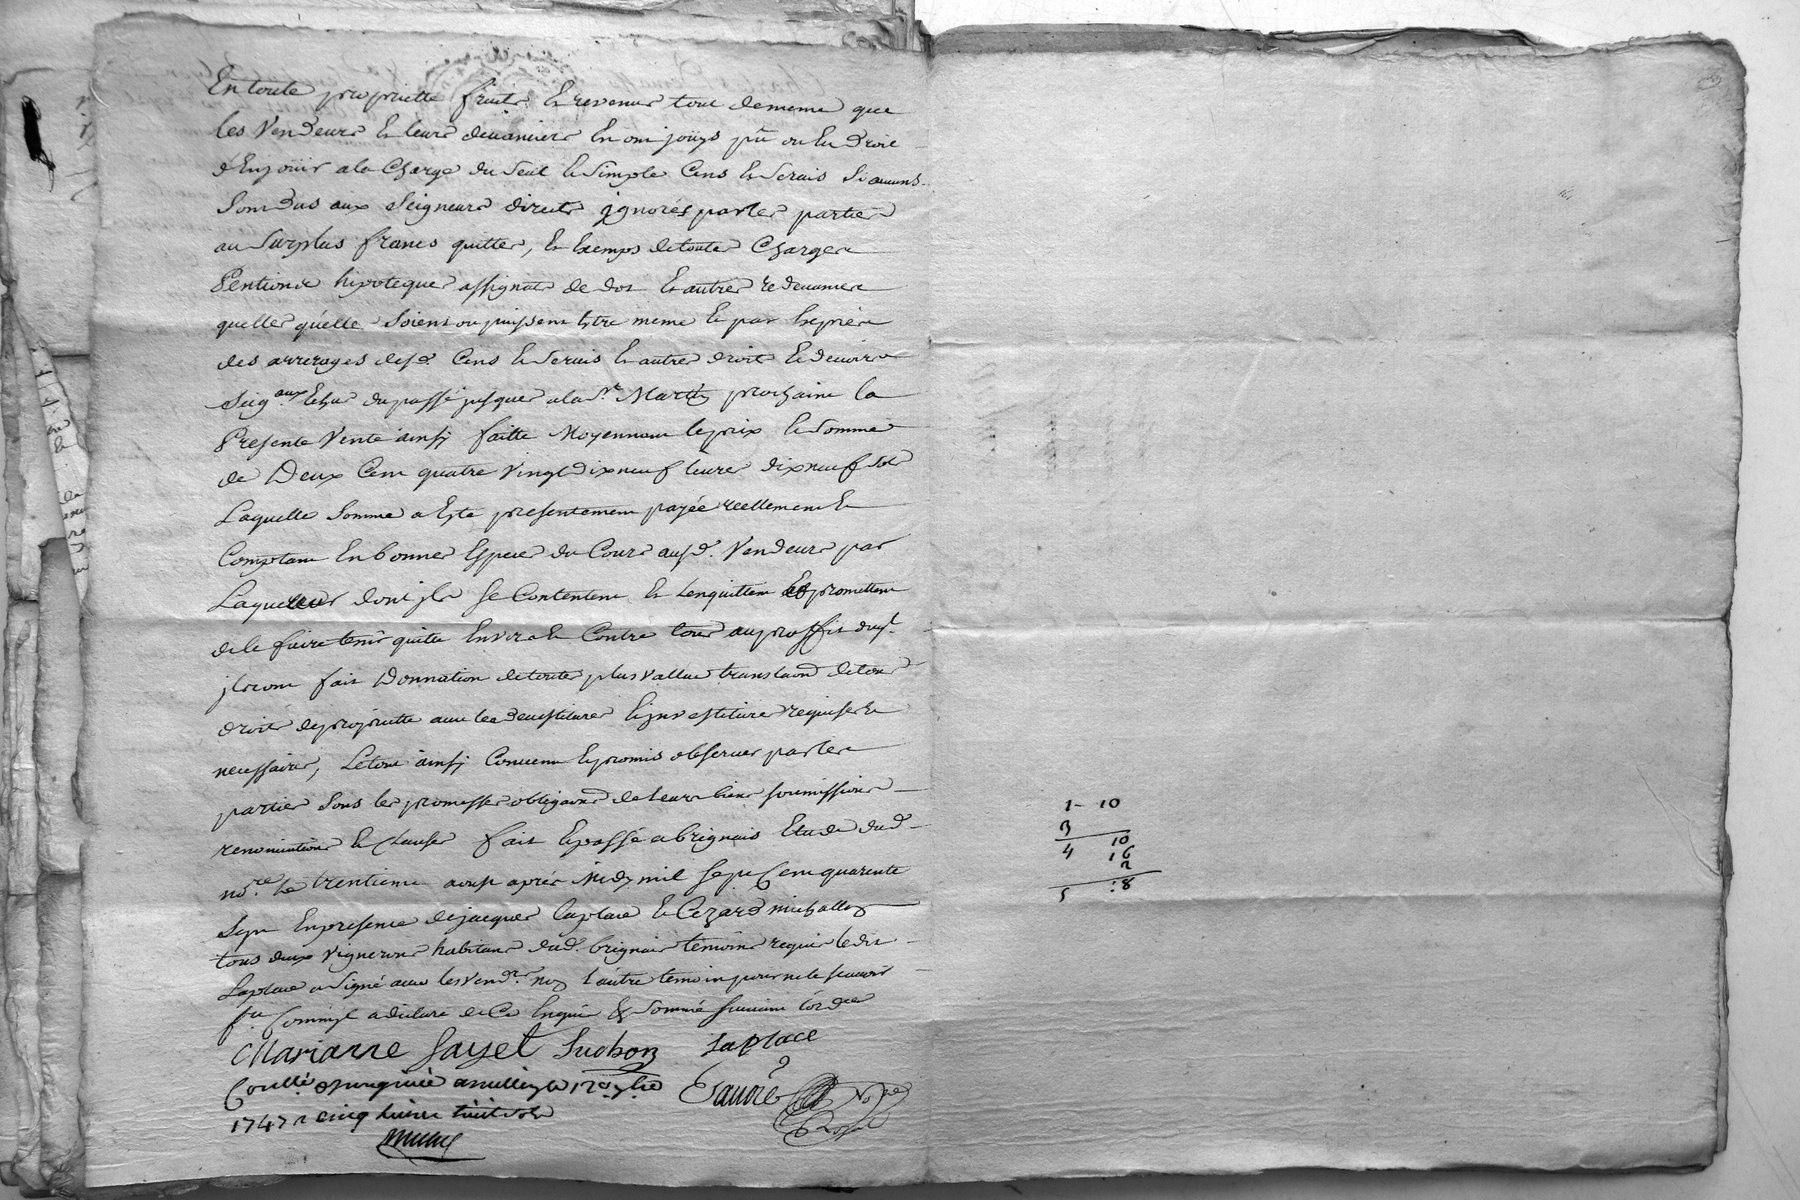 En toute propriette fruits & revenus tout de meme que
les Vendeurs & leurs devanciers En ont jouys pû ou Eu droit
d'En jouir a la Charge du seul & simple Cens & servis si aucuns
sont dus aux seigneurs directs ignorés par les parties
au surplus francs quittes, & Exemps de toutes Charges
Pentions hipoteques assignats de dot & autres redevances
quelles qu'elle soient ou puissent Estre meme & par Exprès
des arrerages desd. Cens & servis & autres droit & devoirs
seig.aux Echus du passé jusques a la St. Martin prochaine la
Presente Vente ainsy faitte Moyennant le prix & somme
de Deux Cent quatre Vingt dix neuf livres dix neuf sols
Laquelle somme a Esté presentement payée reellement &
Comptant En bonnes Especes du Cours ausd. Vendeurs par
dont ils se Contentent & Lenquittent & promettent
de le faire tenir quitte Envers & Contre tous au proffit duql.
ils ont fait Donnation de toute plus Vallue de tous
droits de propriette avec les devestitures & investitures requises &
necessaires, Le tout ainsy Convenu & promis observer par les
parties sous les promesses obligaons de leurs biens soumissions
renonciations & Clauses fait & passé a brignais Etude dud.
nore Le trentieme aoust aprés Midy mil sept Cent quarente
sept En presence de jacques Laplace & Cezard michallet
tous deux Vignerons habitans dud. brignais temoins requis ledit
Laplace a signé avec les Vendrs. non l'autre temoin pour ne le sçavoir
a declaré de Ce Enquis & sommé suivant l'ordce
Marianne Gayet Suchon Laplace
Conllé & insinué a millery le 12e 7bre
1747 R cinq livres huit sols
Favre Nore
Royal
1 - 10
3
4 10
16
2
5 : 8